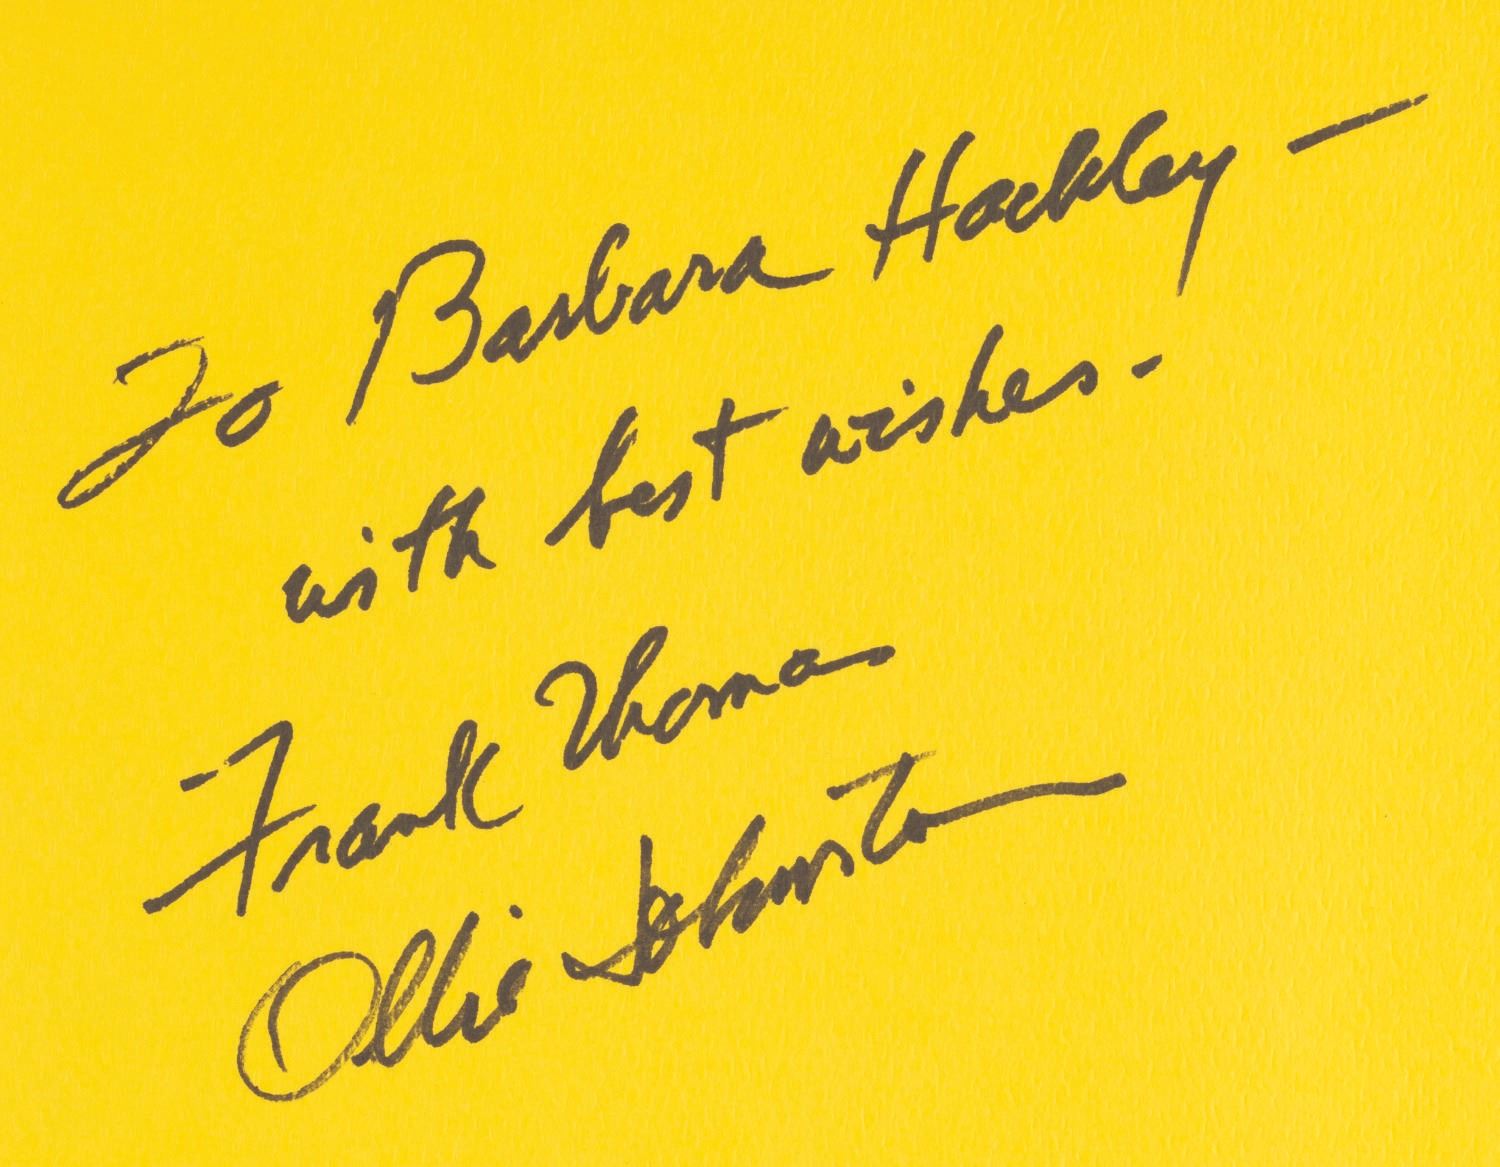 To Barbara Hackley —
with best wishes -
Frank Thomas
Ollie Johnston